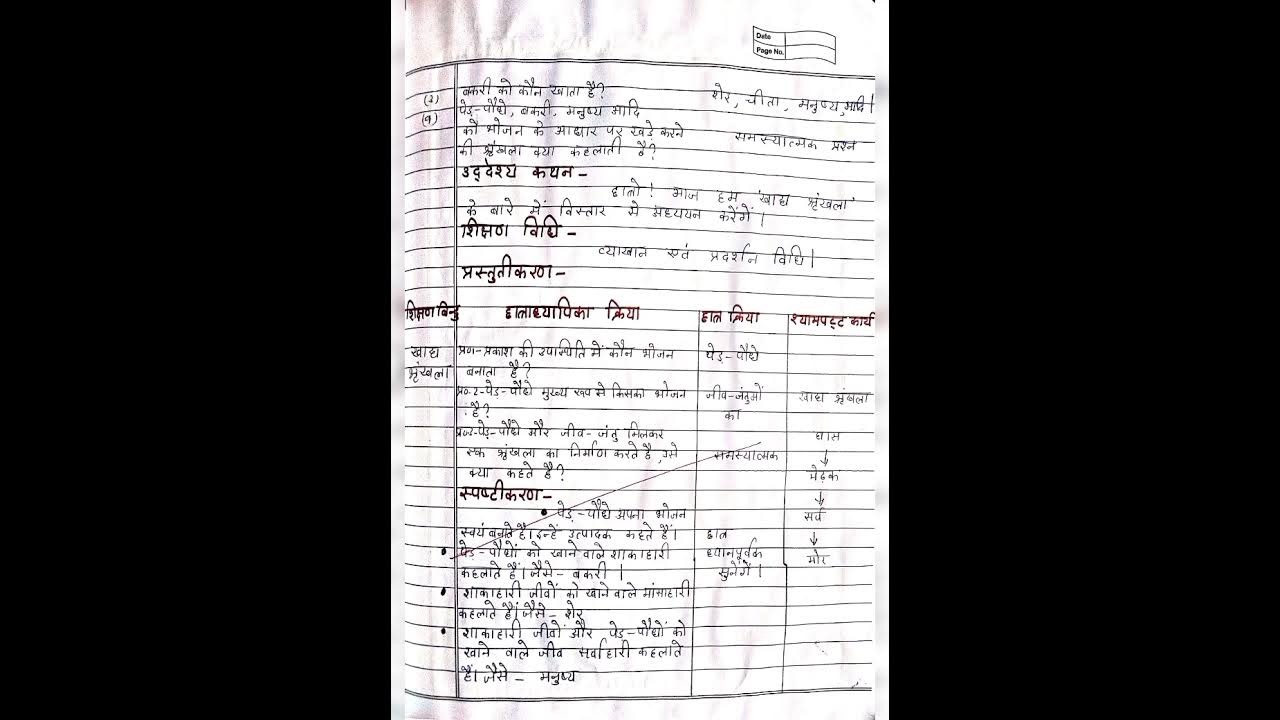 Date
Page No.
(3) बकरी को कौन खाता है? शेर, चीता, मनुष्य, आदि।
(4) पेड़-पौधे, बकरी, मनुष्य आदि
को भोजन के आधार पर खड़े करने समस्यात्मक प्रश्न
की श्रृंखला क्या कहलाती है?
उद्देश्य कथन -
छात्रो! आज हम 'खाद्य श्रृंखला'
के बारे में विस्तार से अध्ययन करेंगें।
शिक्षण विधि -
व्याखान एवं प्रदर्शन विधि।
प्रस्तुतीकरण -
शिक्षण बिन्दु छात्राध्यापिका क्रिया छात्र क्रिया श्यामपट्ट कार्य
खाद्य प्र०1- प्रकाश की उपास्थिति में कौन भोजन पेड़-पौधे
श्रृंखला बनाता है?
प्र०2- पेड़-पौधे मुख्य रूप से किसका भोजन जीव-जंतुओं खाद्य श्रृंखला
है? का
प्र०3- पेड़-पौधे और जीव-जंतु मिलकर घास
एक श्रृंखला का निर्माण करते है, उसे समस्यात्मक ↓
क्या कहते है? मेढ़क
स्पष्टीकरण - ↓
• पेड़-पौधे अपना भोजन सर्प
स्वयं बनाते है। इन्हें उत्पादक कहते हैं। छात्र ↓
• पेड़-पौधों को खाने वाले शाकाहारी ध्यानपूर्वक मोर
कहलाते हैं। जैसे - बकरी। सुनेगें।
• शाकाहारी जीवों को खाने वाले मांसाहारी
कहलाते हैं। जैसे - शेर
• शाकाहारी जीवों और पेड़-पौधों को
खाने वाले जीव सर्वाहारी कहलाते
हैं। जैसे - मनुष्य